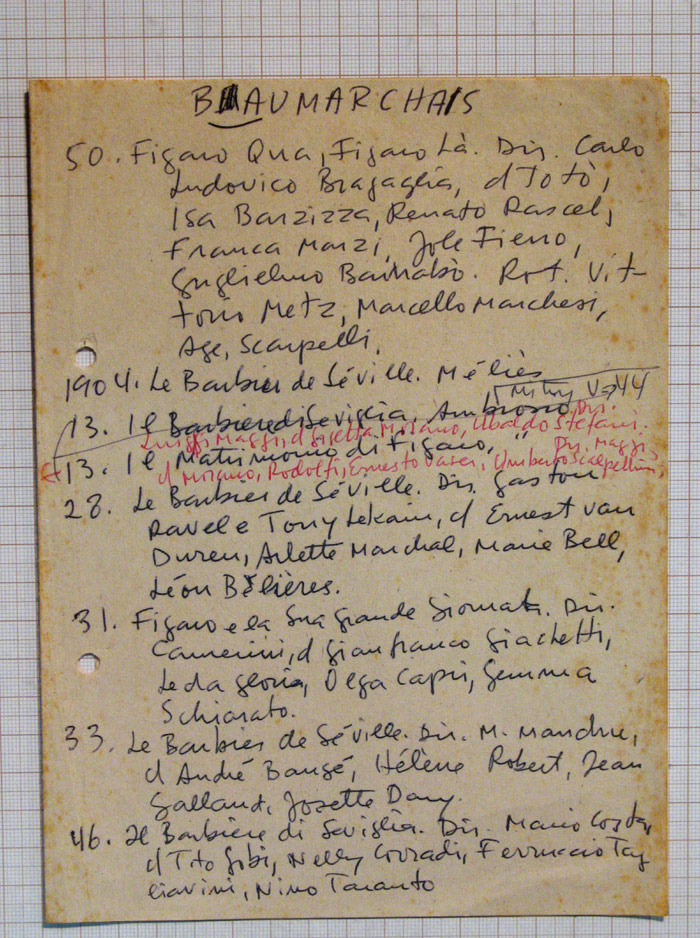 BEAUMARCHAIS
50. Figaro Qua, Figaro Là. Dir. Carlo
Ludovico Bragaglia, d Totò,
Isa Barzizza, Renato Rascel,
Franca Marzi, Jole Fierro,
Guglielmo Barnabò. Rot. Vit-
torio Metz, Marcello Marchesi,
Age, Scarpelli.
1904. Le Barbier de Séville. Méliès
Mitry V-44
13. Il Barbiere di Siviglia, Ambrosio, Dir.
Luigi Maggi, d Gigetta Morano, Ubaldo Stefani.
13. Il Matrimonio di Figaro, " Dir. Maggi,
d Morano, Rodolfi, Ernesto Vaser, Umberto Scalpellini,
28. Le Barbier de Séville. Dir. Gaston
Ravel e Tony Lekain, d Ernest van
Duren, Arlette Marchal, Marie Bell,
Léon Bélières.
31. Figaro e la Sua grande Giornata. Dir.
Camerini, d Gianfranco Giachetti,
Leda Gloria, Olga Capri, Gemma
Schirato.
33. Le Barbier de Séville. Dir. M.
d André Baugé, Hélène Robert, Jean
Galland, Josette Day.
46. Il Barbiere di Siviglia. Dir. Mario Costa,
d Tito Gobi, Nelly Corradi, Ferruccio Tag
liavini, Nino Taranto